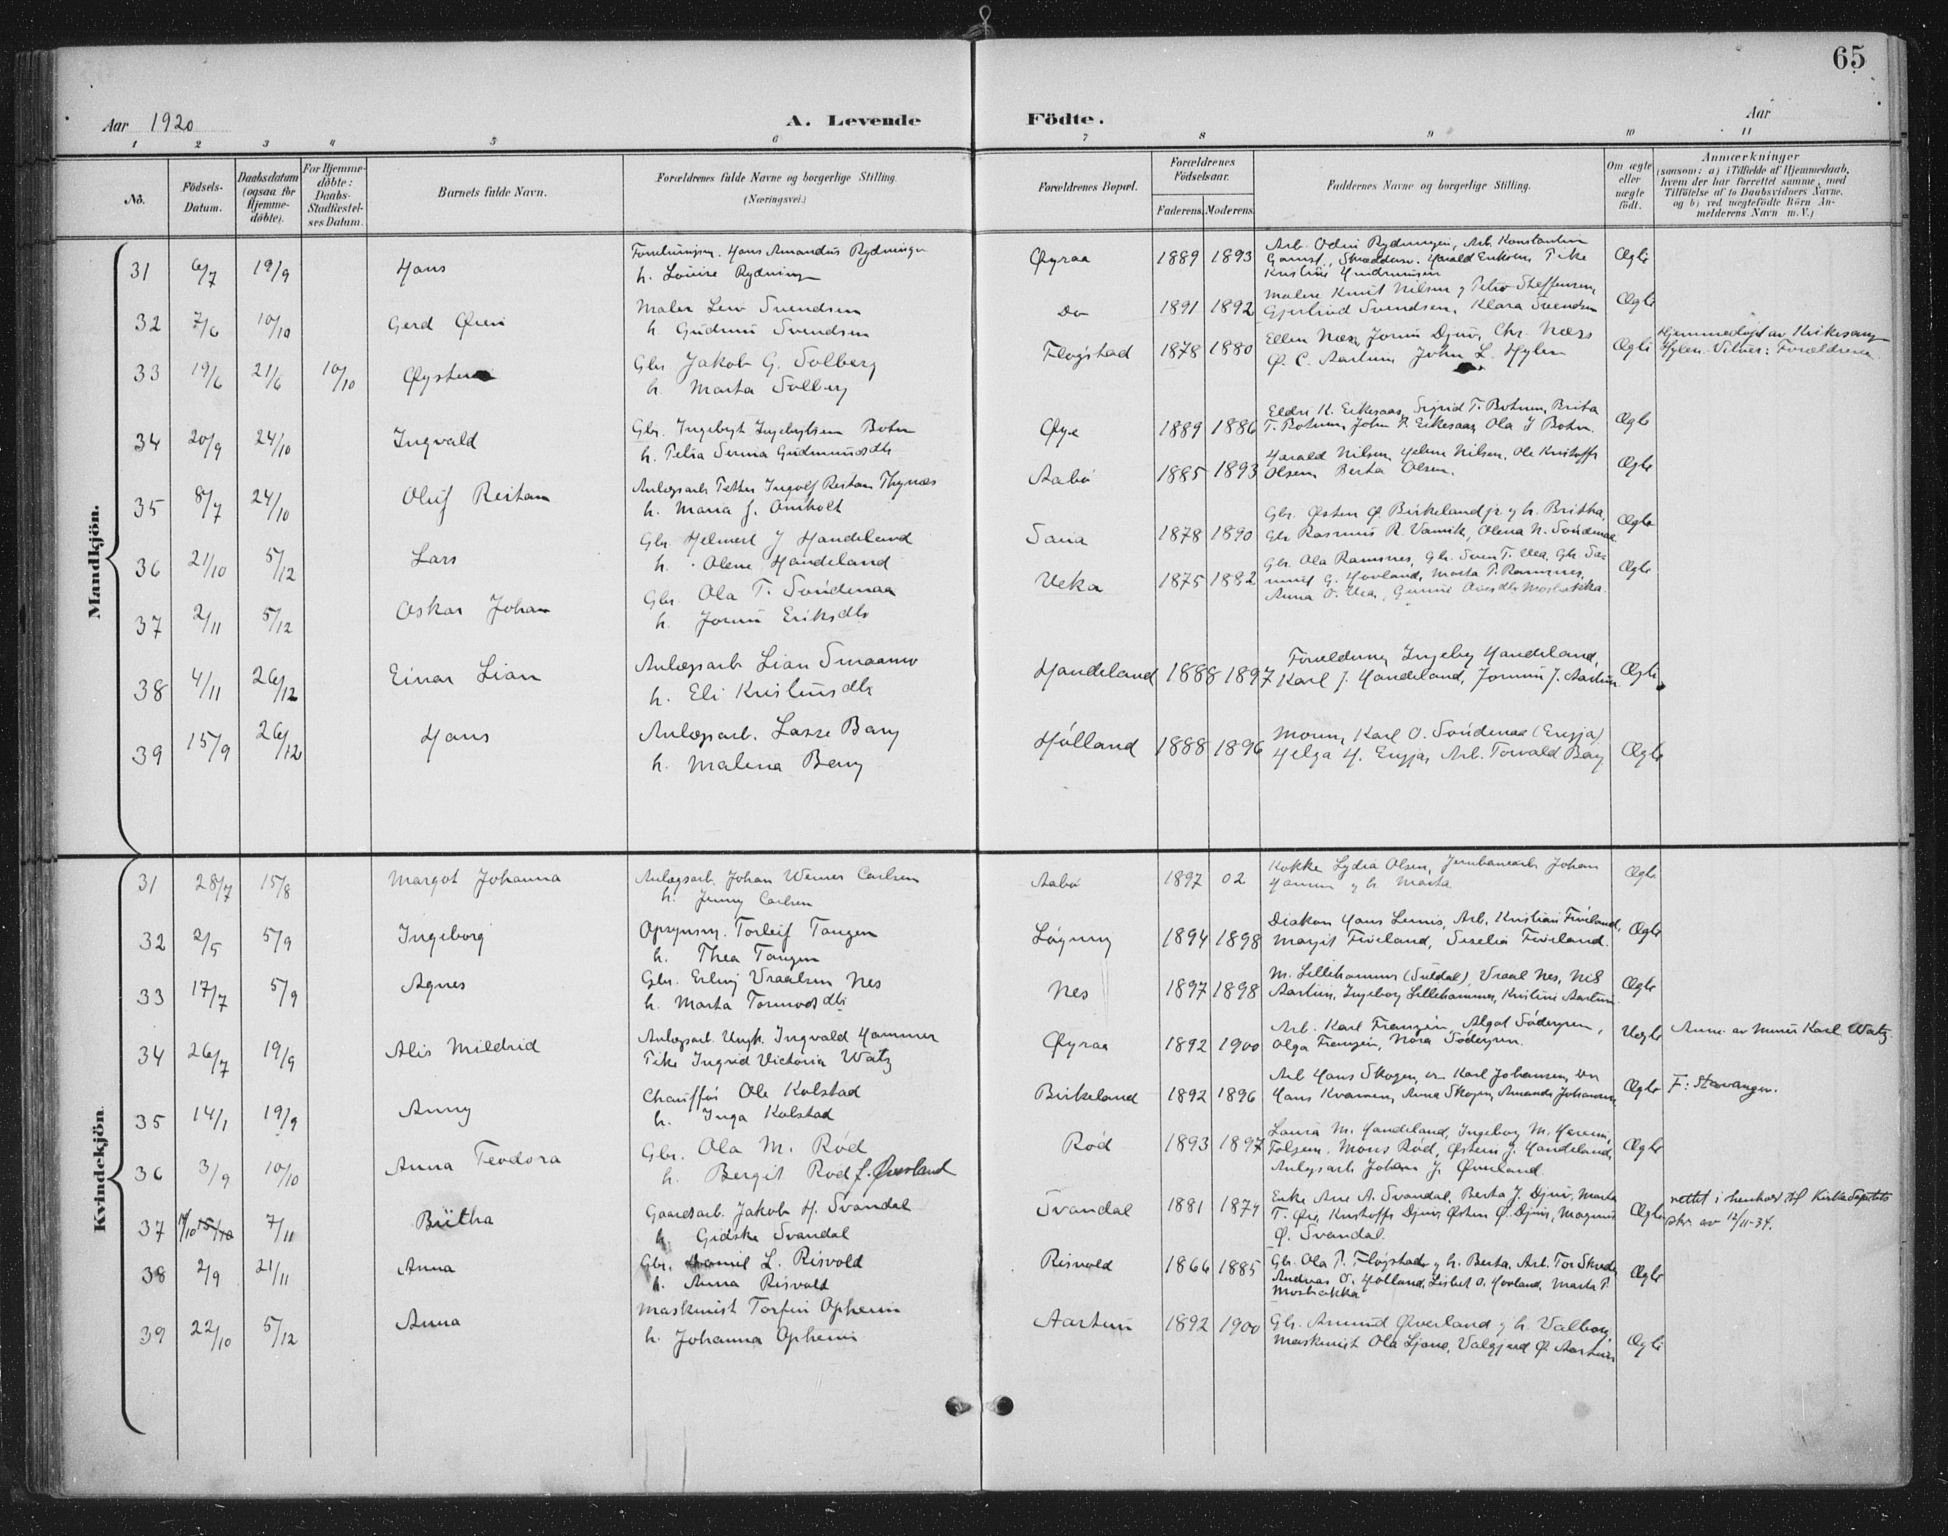 65
Aar 1920
A. Levende Födte.
Aar
1 2 3 4 5 6 7 8 9 10 11
No.
Födsels-Datum.
Daabsdatum (ogsaa for Hjemme-döbte).
For Hjemme-döbte: Daabs-Stadfæstel-ses Datum.
Barnets fulde Navn.
Forældrenes fulde Navne og borgerlige Stilling.
(Næringsvei.)
Forældrenes Bopæl.
Forældrenes Födselsaar.
Faderens. Moderens.
Faddernes Navne og borgerlige Stilling.
Om ægte eller uægte födt.
Anmærkninger
(saasom: a) i Tilfælde af Hjemmedaab, hvem der har forrettet samme, med Tilföielse af to Daabsvidners Navne, og b) ved uægtefödte Börn An-melderens Navn m. V.)
Mandkjön.
31 6/7 19/9 Hans
Hans Amandus Rydningen
h. Louise Rydningen
Øyraa 1889 1893
Arb. Odin Rydningen, Arb. Konstantin
Harald Eriksen Pike
Kristine
Ægte
32 7/6 10/10 Gerd Øren
Maler Leiv Svendsen
h. Gudrun Svendsen
Do 1891 1892
Malere Knut Nilsen og Peter Steffensen,
Gjertrud Svendsen, Klara Svendsen
Ægte
33 19/6 21/6 10/10 Øystein
Gbr Jakob G. Solberg
h. Marta Solberg
Flogstad 1878 1880
Ellen Næs, Jorun Djuv, Chr. Næss
Ø. C. Aartun, John L. Hylen
Ægte
Hjemmedøpt av Kirkesang.
Hylen. Vitner: Forældrene
34 20/9 24/10 Ingvald
Gbr. Ingebrigt Ingebrigtsen Botn
h. Petra Serina Gudmundsdtr
Øye 1889 1886
Eldri K. Eikesaas, Sigrid T. Botnen, Brita
T. Botnen, John R. Eikesaas, Ola J Botn.
Ægte
35 8/7 24/10 Oluf Reitan
Anlægsarb Petter Ingolf Reitan Thynæs
h. Maria J. Omholt
Aabø 1885 1893
Harald Nilsen, Helene Nilsen, Ole Kristoffr
Olsen, Berta Olsen.
Ægte
36 21/10 5/12 Lars
Gbr Helmert J Handeland
h. Olene Handeland
Sana 1878 1890
Gbr. Østen Ø. Birkeland jr og h. Britha,
Gbr Rasmus R. Vamik, Olena N. Sondenaa
Ægte
37 2/11 5/12 Oskar Johan
Gbr. Ola T. Söndenaa
h. Jorun Eriksdtr
Veka 1875 1882
Gbr. Ola Ramsnes, Gbr. Sven T. Vea, Gbr Ras-
mus G. Hovland, Marta P. Ramsnes,
Anna O. Vea, Gunni Mosbakka.
Ægte
38 4/11 26/12 Einar Lian
Anlægsarb Lian Smaamo
h. Eli Kristensdtr
Handeland 1888 1897
Forældrene, Ingeborg Handeland,
Karl J. Handeland, Jorunn J. Aartun.
Ægte
39 15/9 26/12 Hans
Anlægsarb. Lasse Berg
h. Malena Berg
Hölland 1888 1896
Moren, Karl O. Söndenaa (Engja)
Helga H. Engja, Arb. Torvald Berg
Ægte
Kvindekjön.
31 28/7 15/8 Margot Johanna
Anlægsarb. Johan Werner Carlsen
h. Jenny Carlsen
Aabø 1897 02
Kokke Lydia Olsen, Jernbanearb Johan
Hansen og h. Marta
Ægte
32 2/5 5/9 Ingeborg
Opsynsm. Torleif Tangen
h. Thea Tangen
Lögning 1894 1898
Diakon Hans Lunis, Arb. Kristian Fiveland,
Margit Fiveland, Siselia Fiveland.
Ægte
33 17/7 5/9 Agnes
Gbr. Erling Vraalsen Nes
h. Marta Tormodsdtr
Nes 1897 1898
M. Lillehammer (Suldal), Vraal Nes, Nils
Aartun, Ingeborg Lillehammer, Kristine Aartun.
Ægte
34 26/7 19/9 Alis Mildrid
Anlægsarb. Ungk. Ingvald Hammer
Pike Ingrid Victoria Watz
Øyraa 1892 1900
Arb. Karl Franzen, Algot Södergren,
Olga Franzen, Nora Södergren.
Uegte
Anm. av Murer Karl Watz.
35 14/1 19/9 Anny
Chauffør Ole Kolstad
h. Inga Kolstad
Birkeland 1892 1896
Arb Hans Skogen, Karl Johansen,
Hans Kvamen, Anna Skogen, Amanda Johansen,
Ægte
F: Stavanger.
36 3/9 10/10 Anna Teodora
Gbr. Ola M. Röd
h. Bergit Röd f. Øverland
Röd 1893 1897
Laura M. Handeland, Ingeborg M. Herheim,
Mons Röd, Østein J. Handeland,
Anlegsarb Johan J. Øverland.
Ægte
37 11/10 15/10 7/11 Britha
Gaardsarb. Jakob H. Svandal
h. Gidske Svandal
Svandal 1881 1874
Enke Ane A. Svandal, Berta J. Djuv, Marta
T. Øie, Kristoffr Djuv, Østen Ø. Djuv, Magnus
Ø. Svandal.
Ægte
rettet i henhold til Kirkedeptets
skr. av 12/11-34.
38 2/9 21/11 Anna
Gbr. Daniel L. Risvold
h. Anna Risvold
Risvold 1866 1885
Gbr. Ola P. Flögstad og h. Berta, Arb. Tor Skeide,
Andreas O. Hölland, Lisbet O. Hovland, Marta P.
Mosbakka
Ægte
39 22/10 5/12 Anna
Maskinist Torfin Opheim
h. Johanna Opheim
Aartun 1892 1900
Gbr. Amund Øverland og h. Valborg,
Maskinist Ola Ljone, Valgjerd Ø. Aartun
Ægte